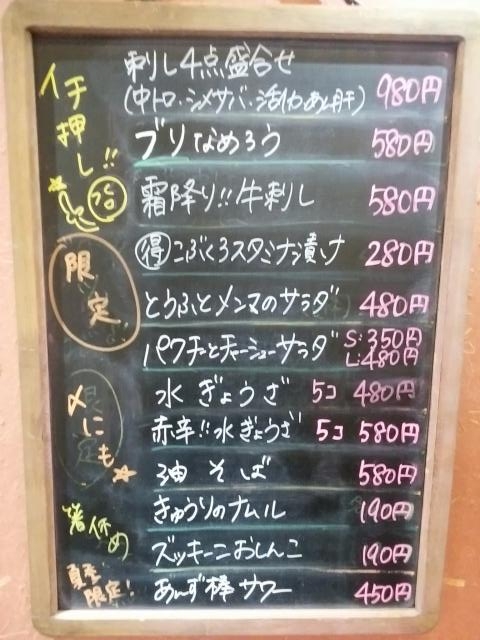 イチ押し!!
刺し4点盛合せ
(中トロ・シメサバ・活イカ・あん肝) 980円
ブリなめろう 580円
霜降り!!牛刺し 580円
限定
得 こぶくろスタミナ漬け 280円
とうふとメンマのサラダ 480円
パクチーとチャーシューサラダ S:350円
L:480円
〆にも
水ぎょうざ 5コ 480円
赤辛!!水ぎょうざ 5コ 580円
油そば 580円
箸休め
きゅうりのナムル 190円
ズッキーニおしんこ 190円
夏季限定!
あんず棒サワー 450円